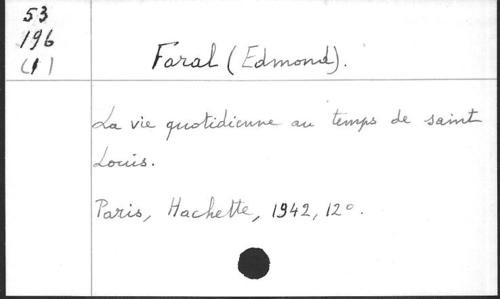 53
196
(1)
Faral (Edmond).
La vie quotidienne au temps de saint
Louis.
Paris, Hachette, 1942, 12°.